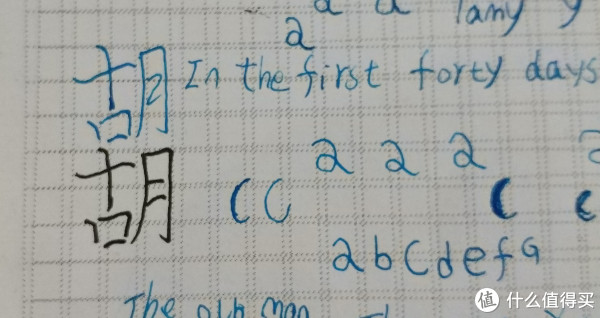 a
胡 In the first forty days
a a a
胡 C C C c
a b C d e f G
The old man
值 什么值得买